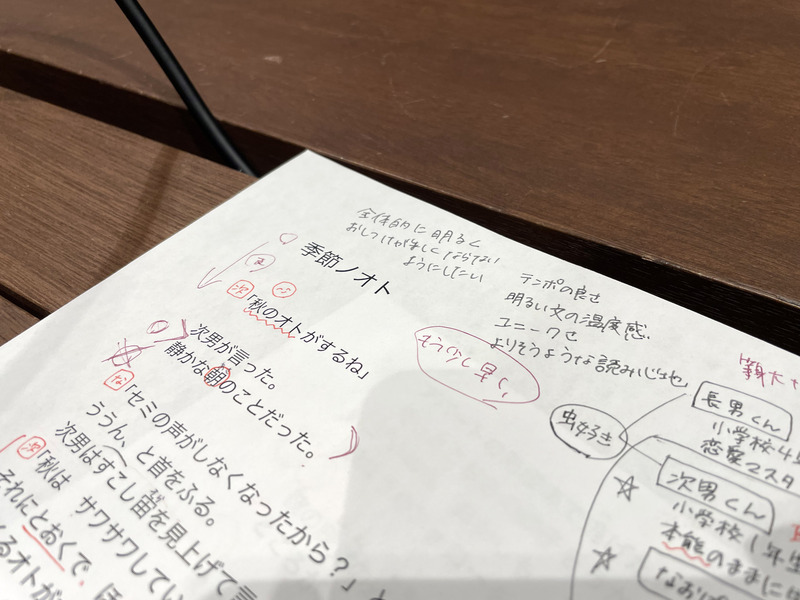 全体的に明るく
おしつけが浅くならない
ようにしたい
テンポの良さ
明るい文の温度感
ユニークさ
よりそうような読み心地
季節ノオト
次
「秋のオトがするね」
次男が言った。
静かな朝のことだった。
な
「セミの声がしなくなったから?」
ううん、と首をふる。
次男はすこし宙を見上げて言
次
「秋は サワサワしてい
それにとおくで、ほ
るオトが
もう少し早く
虫好き
長男くん
小学校4
恋愛マスタ
次男くん
小学校1年生
本能のままに
なおぽ